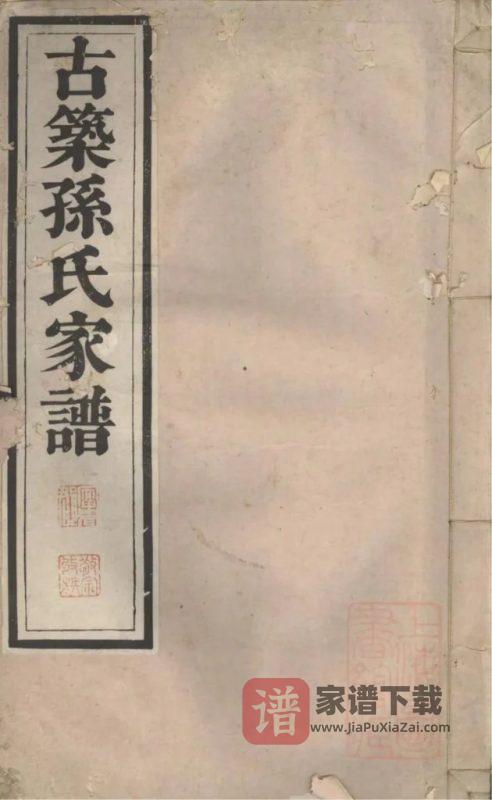 古築孫氏家譜
谱
家谱下载
www.JiaPuXiaZai.com